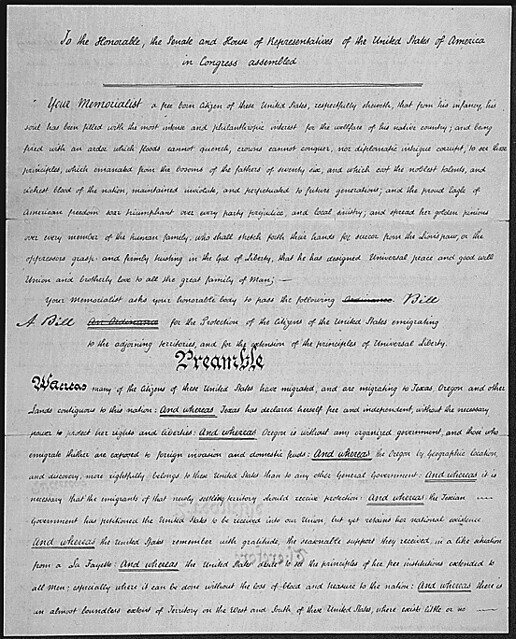 To the Honorable, the Senate and House of Representatives of the United States of America
in Congress assembled
Your Memorialist a free born Citizen of these United States, respectfully sheweth, that from his infancy, his
soul has been filled with the most intense and philanthropic interest for the wellfare of his native country; and being
fired with an ardor which floods cannot quench, crowns cannot conquer, nor diplomatic intrigue corrupt, to see those
principles, which emanated from the bosoms of the fathers of seventy six, and which cost the noblest talents, and
richest blood of the nation, maintained inviolate, and perpetuated to future generations; and the proud Eagle of
American freedom soar triumphant over every party prejudice, and local sinistry; and spread her golden pinions
over every member of the human family, who shall stretch forth their hands for succor from the Lion's paw, or the
oppressors grasp: and firmly trusting in the God of Liberty, that he has designed Universal peace and good will
Union and brotherly love to all the great family of Man; —
Your Memorialist asks your honorable body to pass the following Ordinance. Bill
A Bill An Ordinance for the Protection of the Citizens of the United States emigrating
to the adjoining territories, and for the extension of the principles of Universal Liberty.
Preamble
Whereas many of the Citizens of these United States have migrated, and are migrating to Texas Oregon and other
Lands contiguous to this nation: And whereas Texas has declared herself free and independent, without the necessary
power to protect her rights and liberties: And whereas Oregon is without any organized government, and those who
emigrate thither are exposed to foreign invasion and domestic feuds: And whereas the Oregon by Geographic location,
and discovery, more rightfully belongs to these United States than to any other General Government: And whereas it is
necessary that the emigrants of that newly settling territory should receive protection: And whereas the Texian —
Government has petitioned the United States to be received into our Union but yet retains her national existence
And whereas the United States remember with gratitude, the seasonable support they received, in a like situation
from a La Fayette: And whereas the United States desire to see the principles of her free institutions extended to
all Men; especially where it can be done without the loss of blood and treasure to the nation: And whereas there is
an almost boundless extent of Territory on the West and South of these United States, where exists little or no —